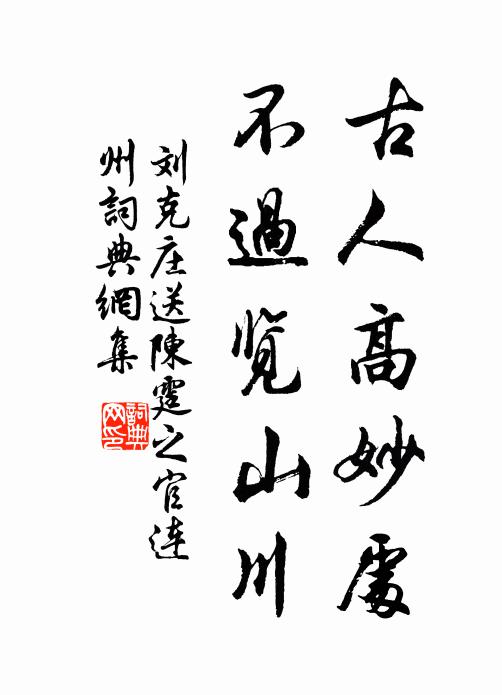 古人高妙處
不過览山川
刘克庄送陳霆之官連
州詞典網集
詞典
网印